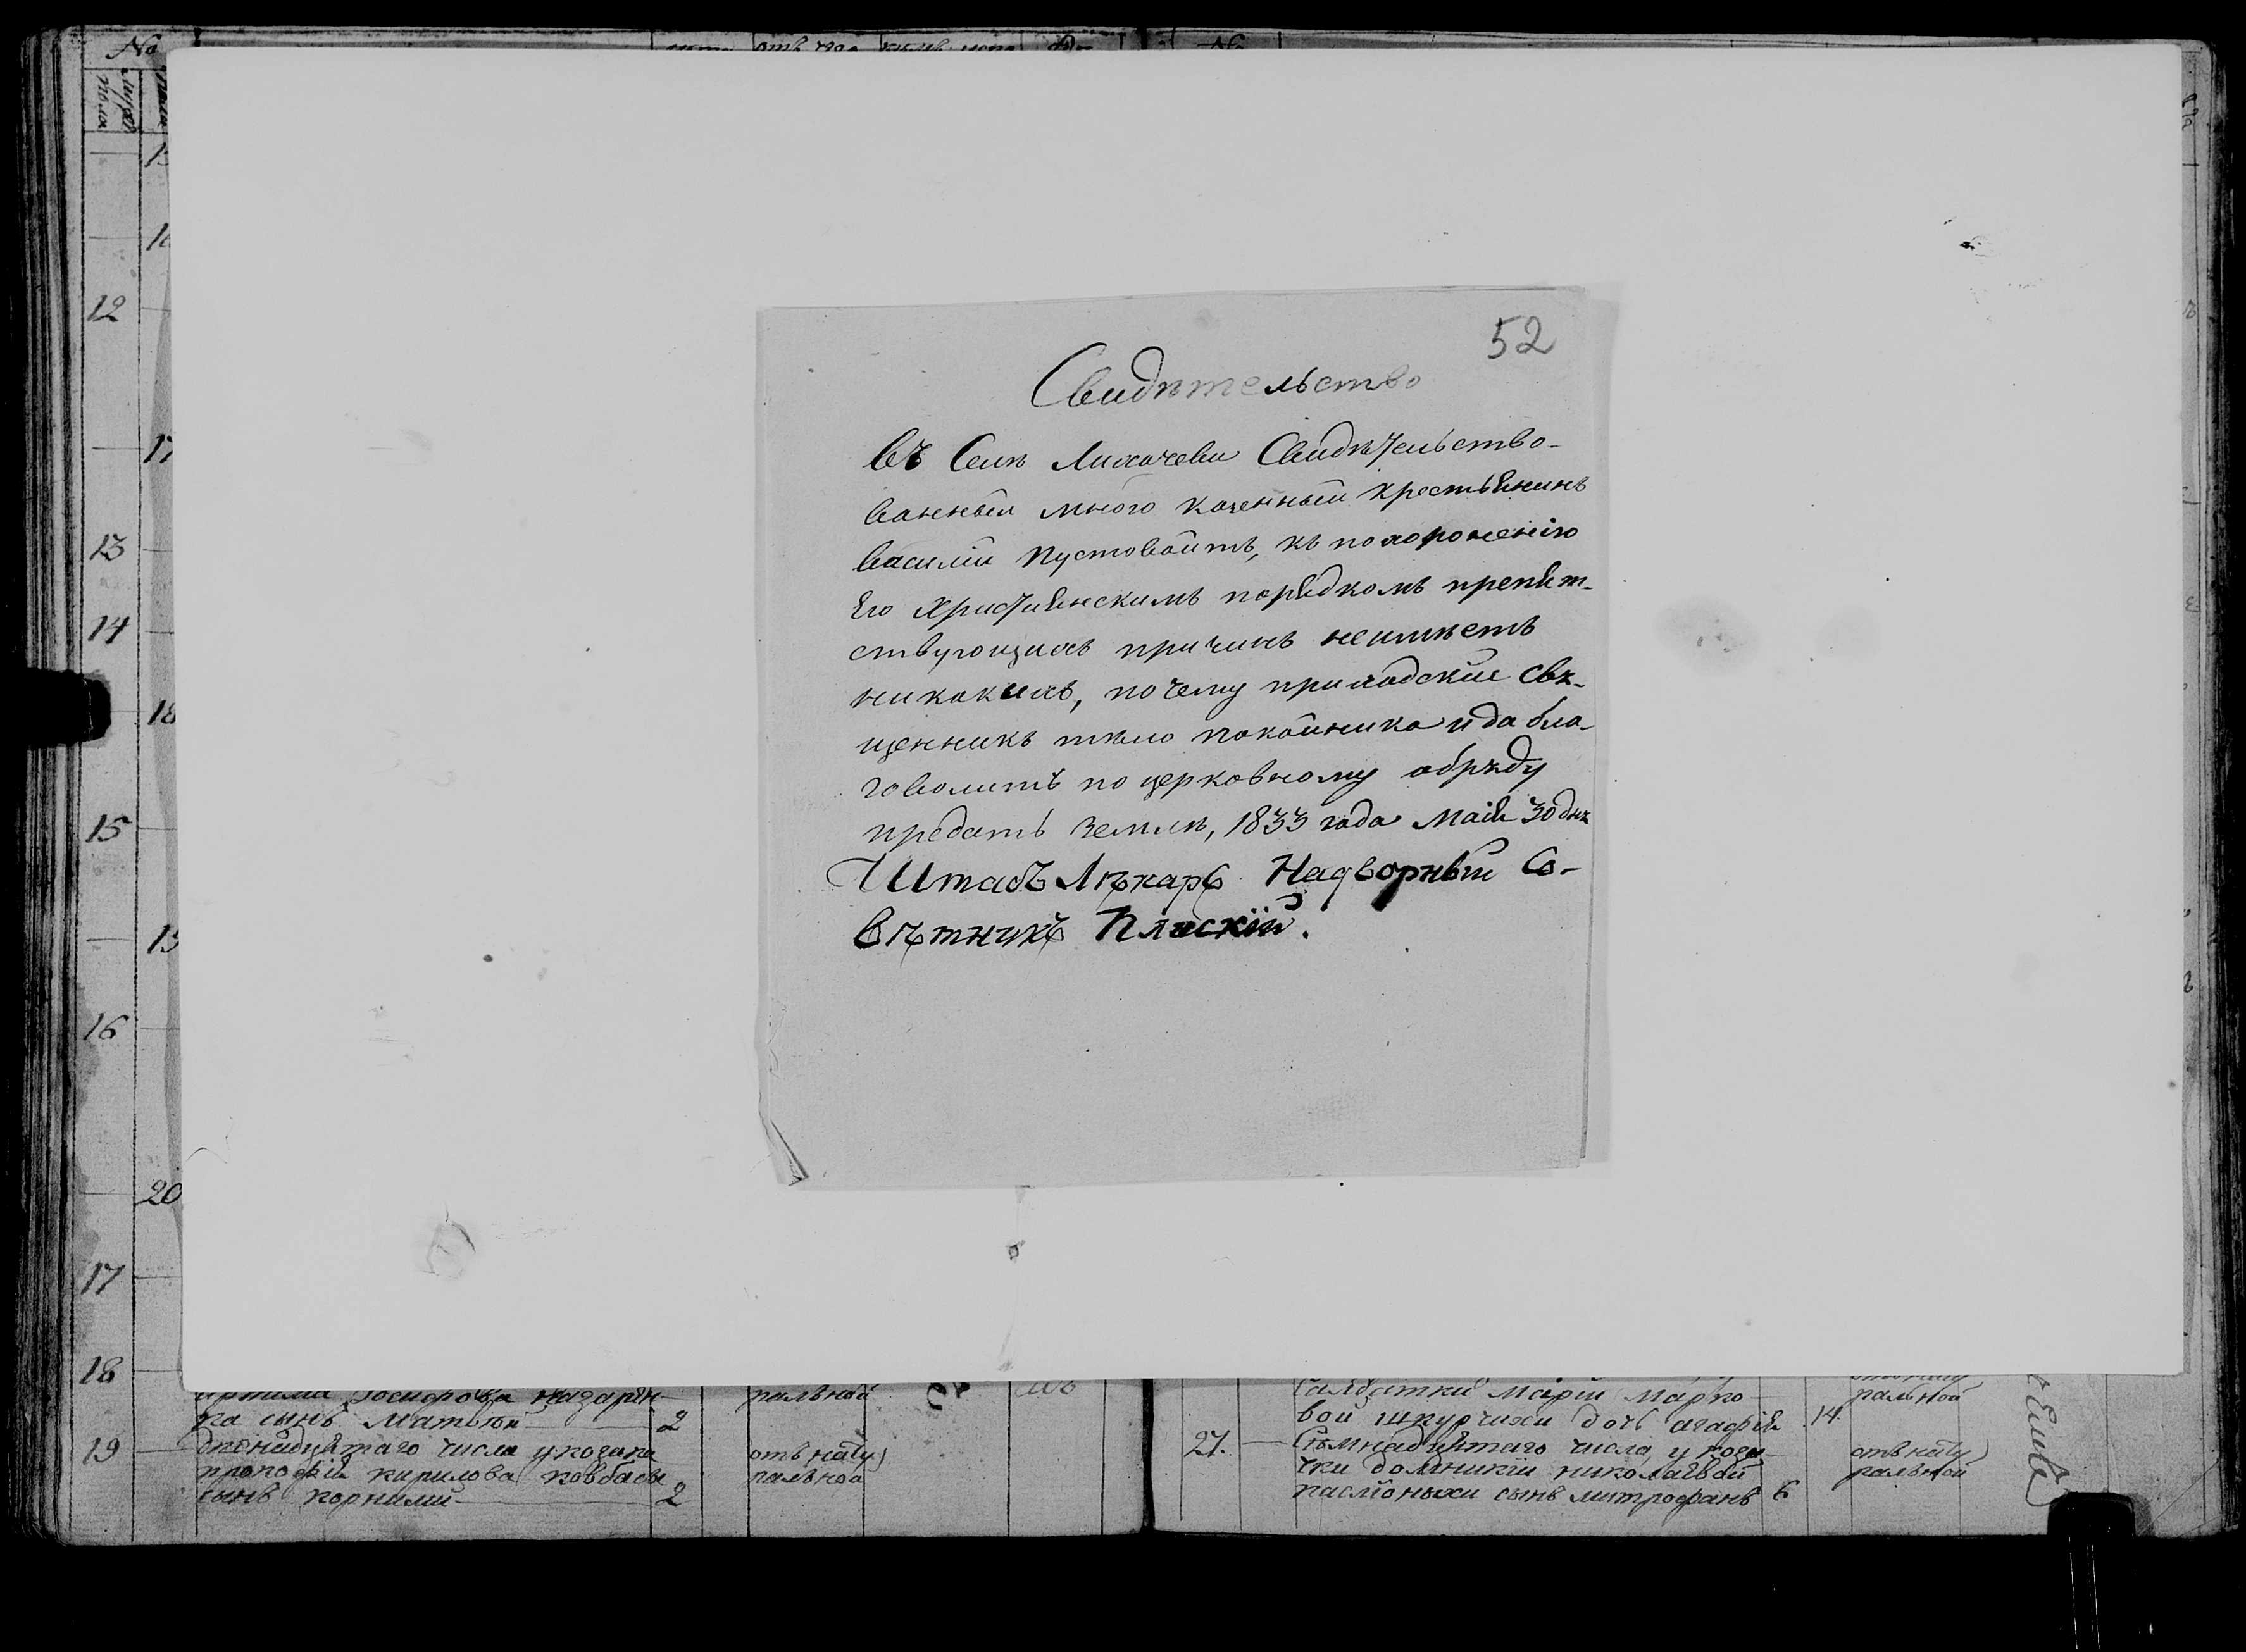 52
Свидѣтельство
Въ Селѣ Лихачеви Свидѣтельство-
ванный мною казенный крестьянинъ
василій Пустовойтъ, къ похоронению
Его Христианскимъ порядкомъ препят-
ствующихъ причинъ неимѣетъ
никакихъ, почему приходские свя-
щенникъ тѣло покойника и да бла-
говолитъ по церковному обряду
предать землѣ, 1833 года Маія 30 дня
Штабъ Лѣкарь Надворный Со-
вѣтникъ Пляскій.
№
12
13
14
15
16
17
18
19
17
18
20
ка сынъ Матвѣй 2
надцятаго числа у козака
прокофія кирилова ковбасы
сынъ корнилий 2
ральной
отъ нату
ральной
Салдатки Марии Марко-
вой шкурчихи дочь агафія 14.
27. Седмнадцятаго числа, у коза-
чки домникии николаевой
сынъ митрофанъ 6
ральной
отъ нату
ральной